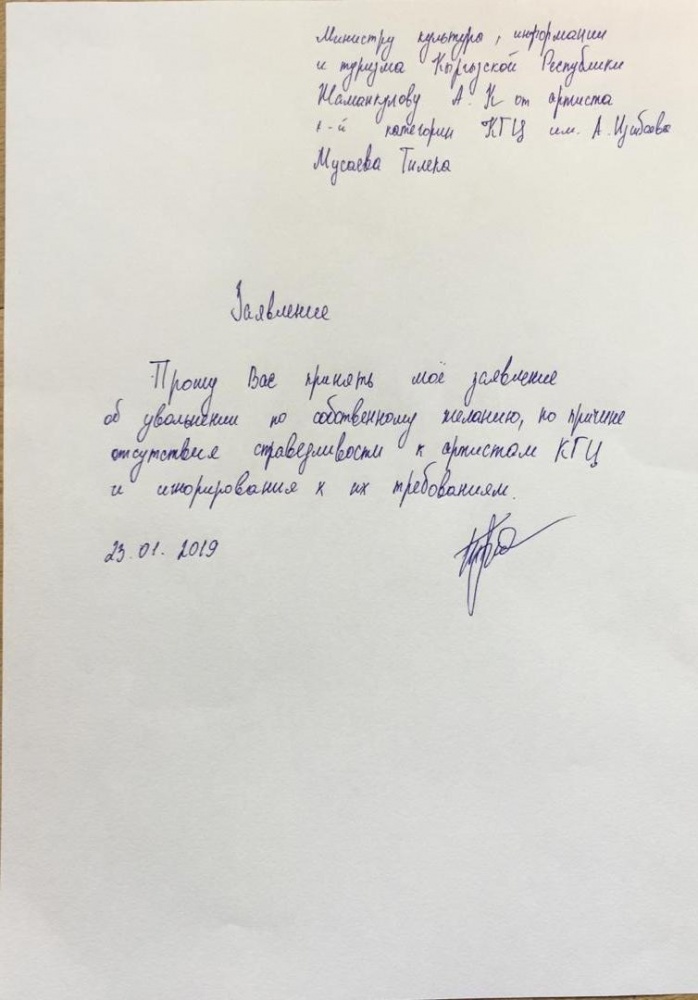 Министру культуры, информации
и туризма Кыргызской Республики
Жаманкулову А. К от артиста
1-й категории КГЦ им. А. Изибаева
Мусаева Тилека
Заявление
Прошу Вас принять моё заявление
об увольнении по собственному желанию, по причине
отсутствия справедливости к артистам КГЦ
и игнорирования к их требованиям.
23.01.2019